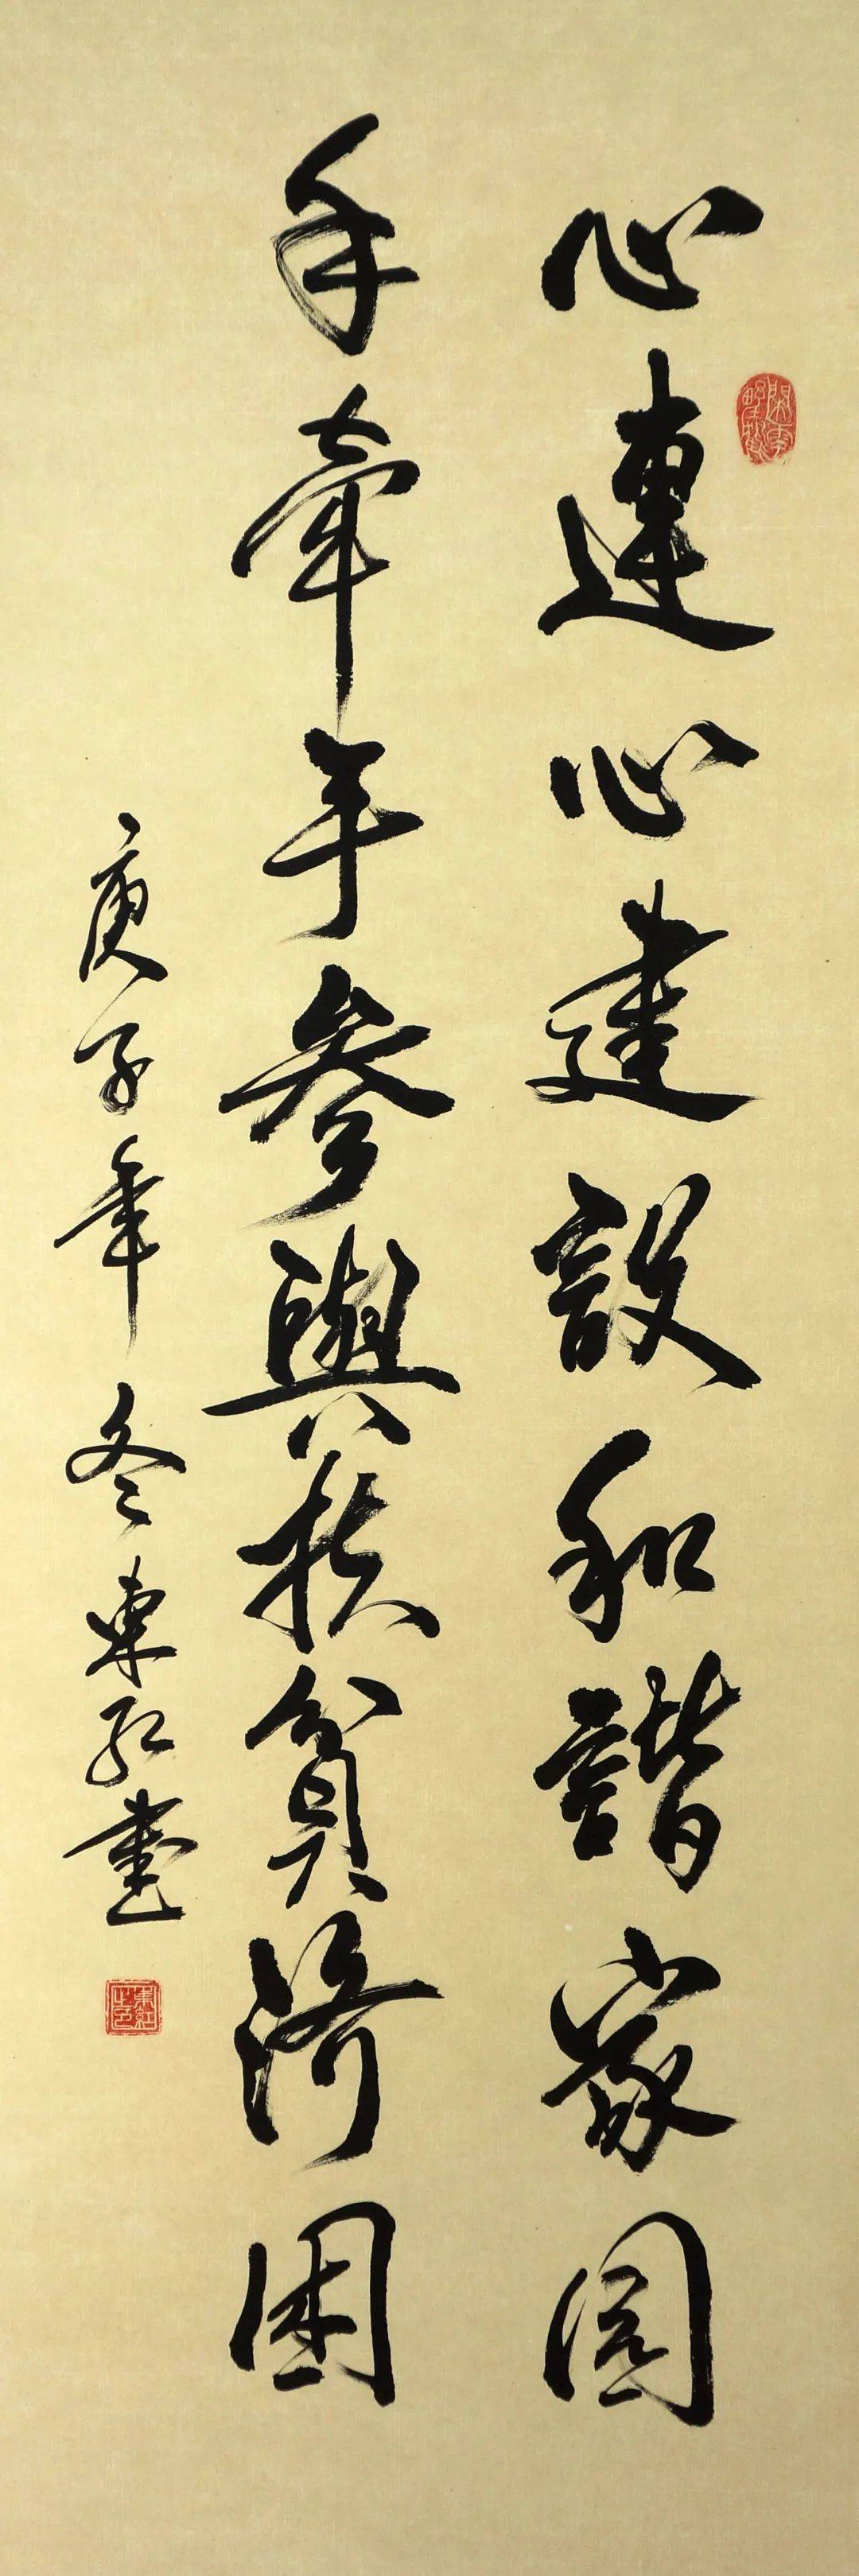 心連心建設和諧家園
手牽手參與扶貧濟困
庚子年冬東紅書